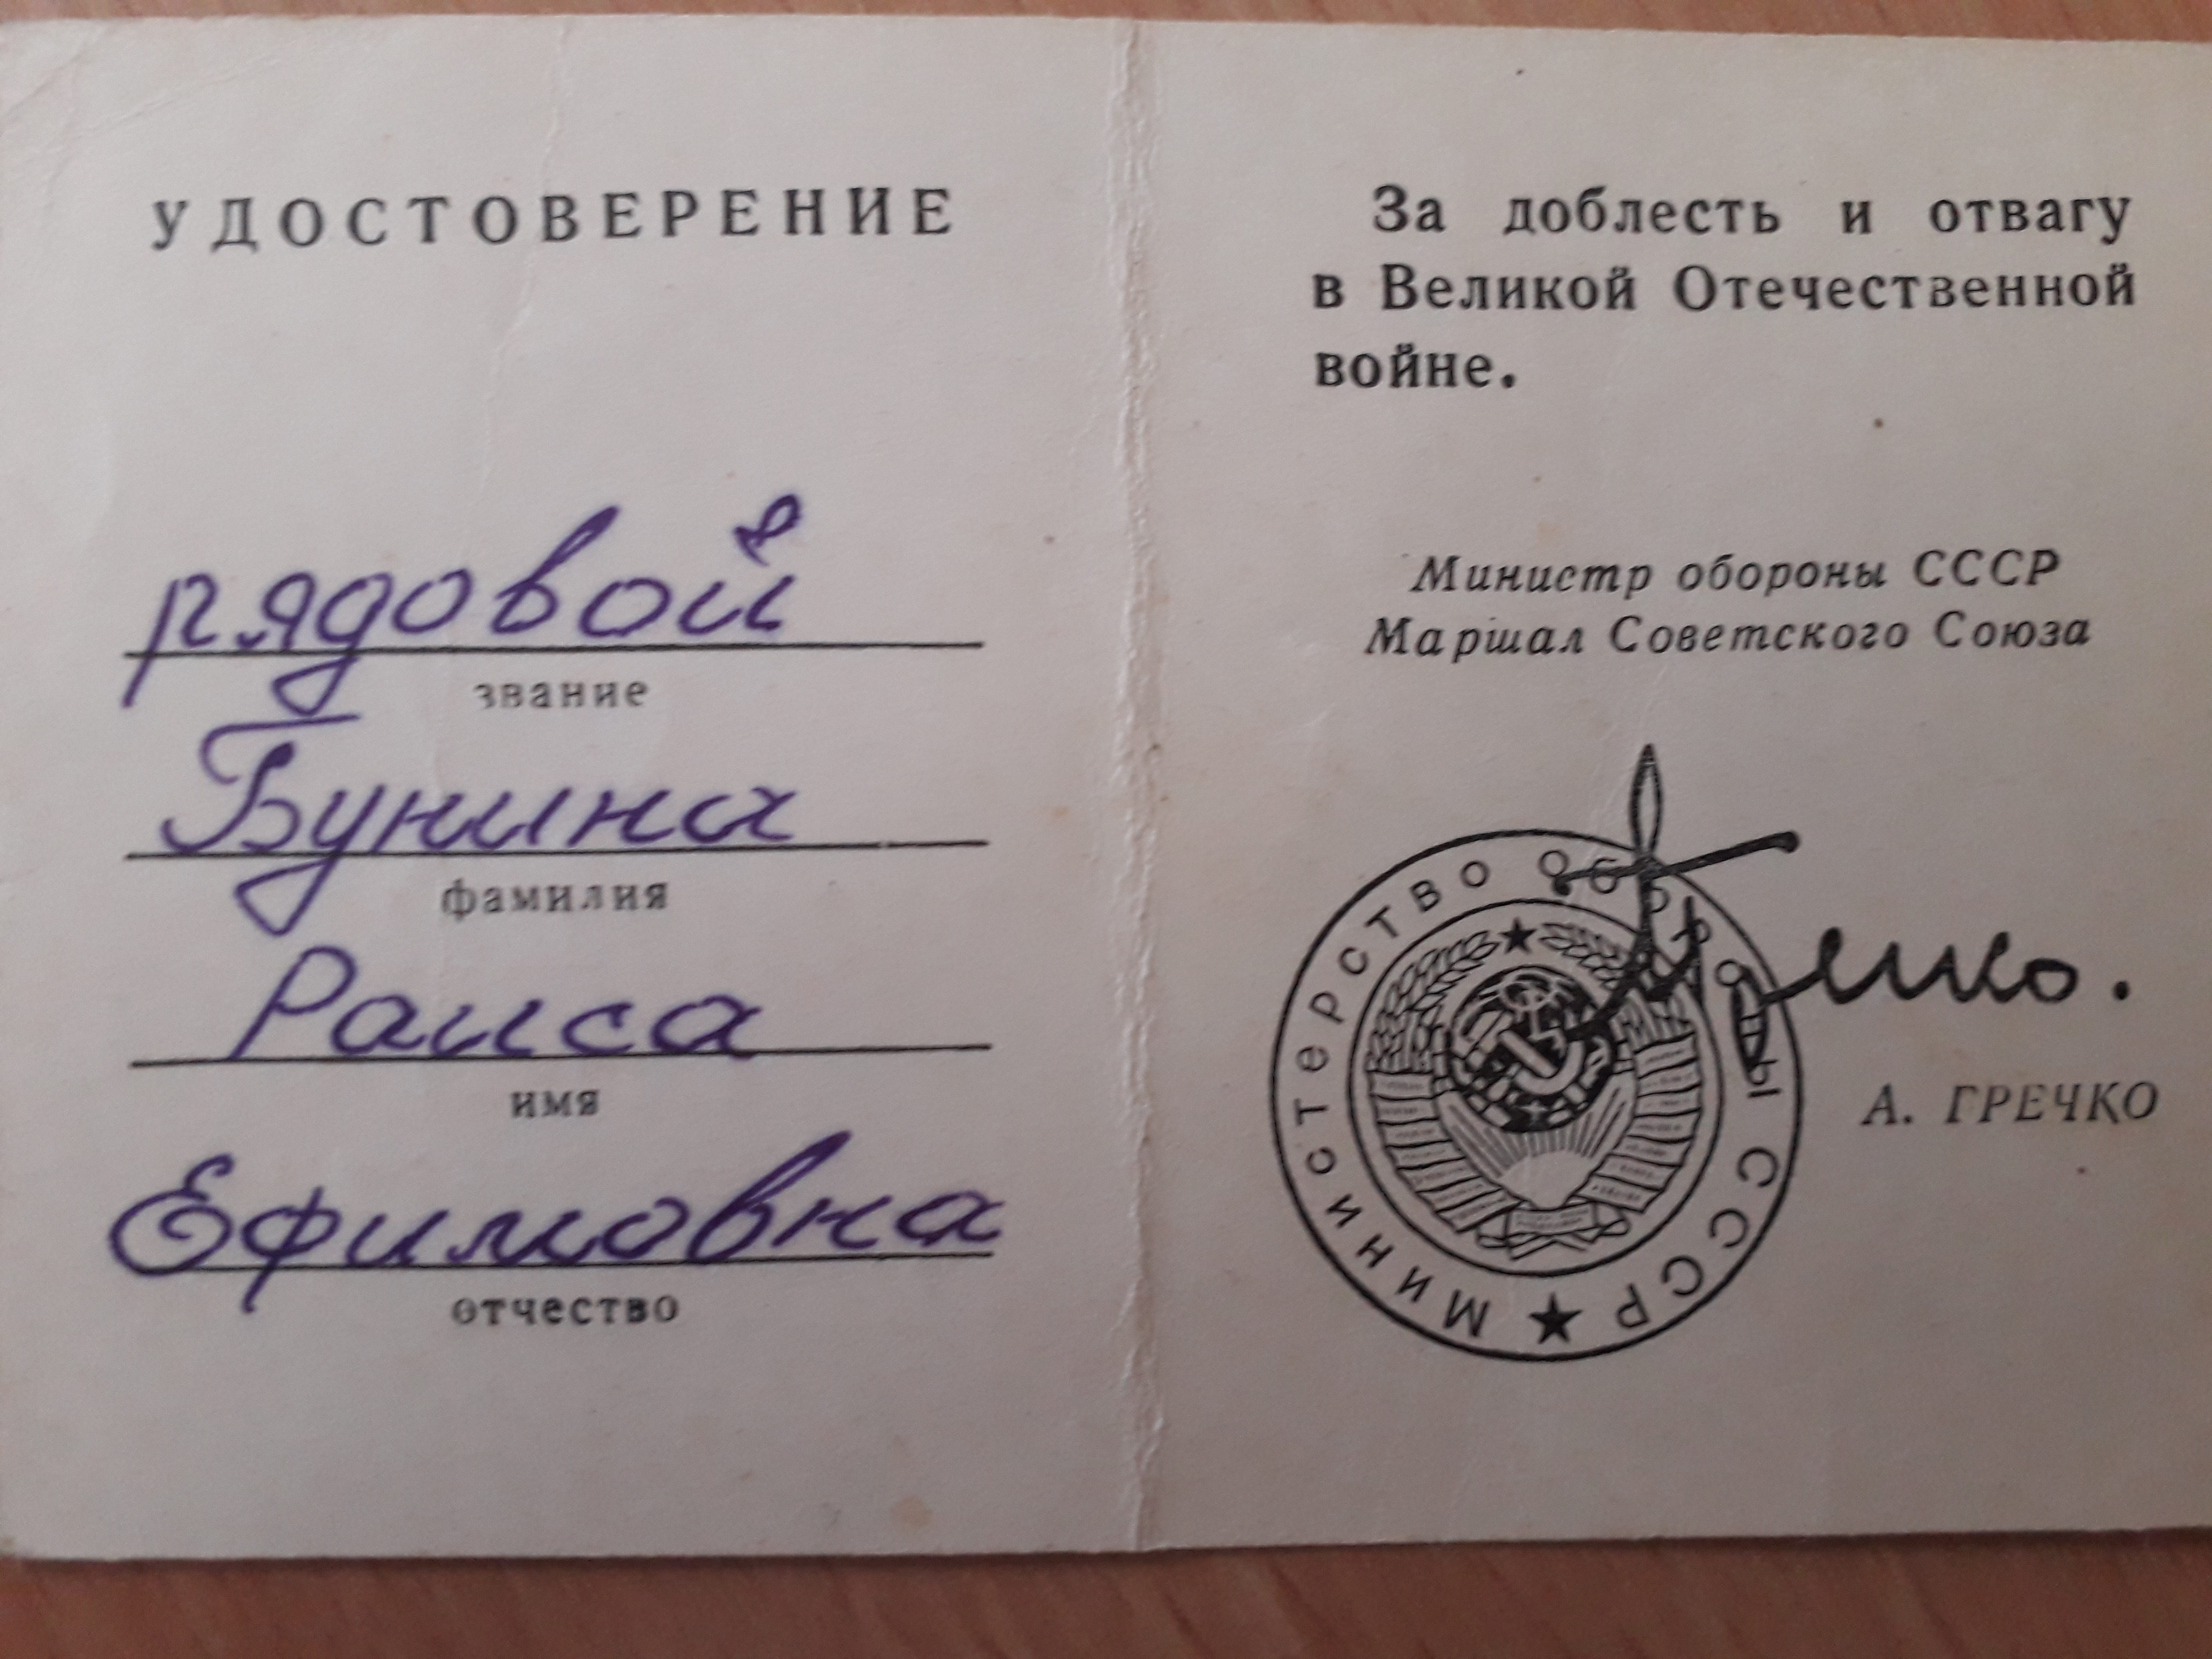 УДОСТОВЕРЕНИЕ
рядовой
звание
Бунина
фамилия
Раиса
имя
Ефимовна
отчество
За доблесть и отвагу
в Великой Отечественной
войне.
Министр обороны СССР
Маршал Советского Союза
МИНИСТЕРСТВО ОБОРОНЫ СССР
А. ГРЕЧКО